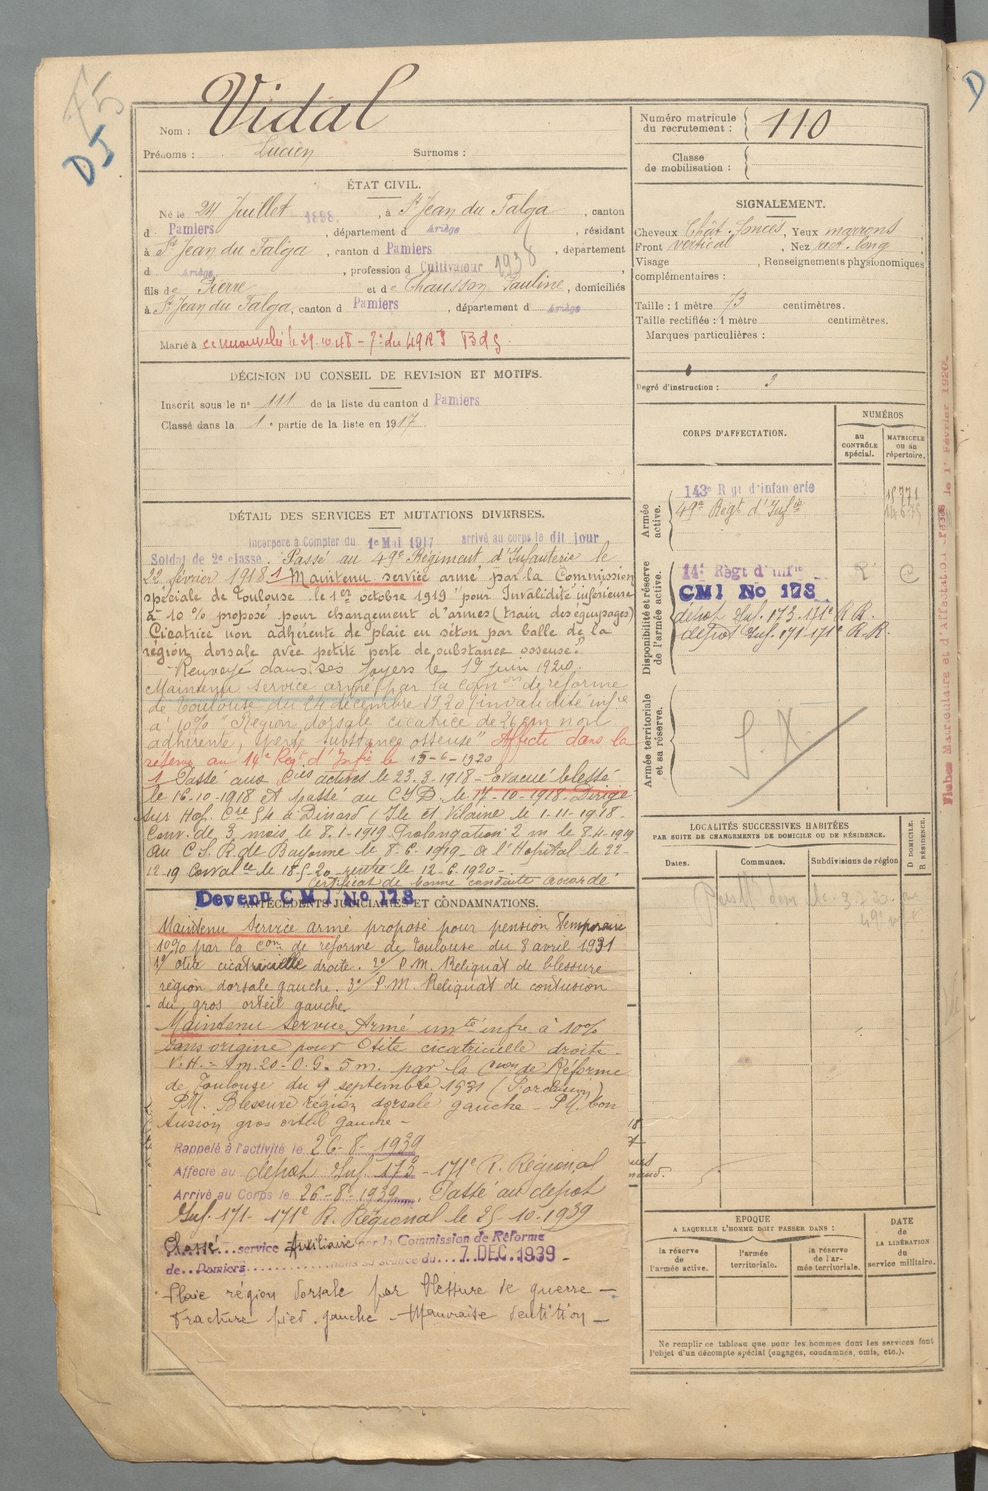 75
DJ
Nom : Vidal
Prénoms : Lucien Surnoms :
ÉTAT CIVIL.
Né le 24 Juillet 1898, à St Jean du Falga, canton
d Pamiers, département d Ariège, résidant
à St Jean du Falga, canton d Pamiers, département
d Ariège, profession d Cultivateur 1938
fils de Pierre et de Chausson Pauline, domiciliés
à St Jean du Falga, canton d Pamiers, département d Ariège
Marié à
DÉCISION DU CONSEIL DE REVISION ET MOTIFS.
Inscrit sous le n° 111 de la liste du canton d Pamiers
Classé dans la 1e partie de la liste en 1917.
DÉTAIL DES SERVICES ET MUTATIONS DIVERSES.
Incorporé à Compter du 1e Mai 1917 arrivé au corps le dit jour
Soldat de 2e classe. Passé au 49e Régiment d'Infanterie le
22 février 1918. 1 Maintenu service armé par la Commission
spéciale de Toulouse le 1er octobre 1919 "pour Invalidité inférieure
à 10 % proposé pour changement d'armes (train des équipages)
Cicatrice non adhérente de plaie en séton par balle de la
région dorsale avec petite perte de substance osseuse.
Renvoyé dans ses foyers le 12 juin 1920.
Maintenu service armé par la Comon de réforme
de Toulouse du 24 décembre 1920 (invalidité infre
à 10% "Région dorsale cicatrice de 26 cm non
adhérente, perte substance osseuse" Affecté dans la
réserve au 14e Régt d'Infie le 15-6-1920
1 Passé aux Cies actives le 23.3.1918 - Evacué blessé
le 16-10-1918 et passé au CID le 17-10-1918. Dirigé
sur Hop. Cre 54 à Dinard (Ile et Vilaine le 1-11-1918.
Conv. de 3 mois le 8-1-1919. Prolongation 2 m le 8-4-1919
au C.S.R. de Bayonne le 8-6-1919 - a l'Hopital le 22-
12-19 Convalce le 18-5-20 - rentré le 12-6-1920 -
Certificat de bonne conduite accordé
Devenu C M I No 178
ANTÉCÉDENTS JUDICIAIRES ET CONDAMNATIONS.
Maintenu Service armé proposé pour pension temporaire
10% par la Con de réforme de Toulouse du 8 avril 1931
1°/ otite cicatricielle droite. 2°/ P.M. Reliquat de blessure
région dorsale gauche. 3°/ P.M. Reliquat de contusion
du gros orteil gauche.
Maintenu Service Armé inté infre à 10%
sans origine pour Otite cicatricielle droite -
V.H. = 1m.20 - O.G. 5 m. par la Con de Réforme
de Toulouse du 9 septembre 1931
P.M. Blessure région dorsale gauche - P.M. con
tusion gros orteil gauche -
Rappelé à l'activité le 26-8-1939
Affecté au dépôt Inf. 173 - 171e R. Régional
Arrivé au Corps le 26-8-1939. Passé au dépôt
Inf. 171 - 171e R. Régional le 25-10-1939
Classé service Auxiliaire par la Commission de Réforme
de Pamiers dans sa séance du 7 DEC. 1939 -
Plaie région dorsale par blessure de guerre -
Fracture pied gauche - Mauvaise dentition -
Numéro matricule du recrutement : 110
Classe de mobilisation :
SIGNALEMENT.
Cheveux Chât. foncés, Yeux marrons
Front vertical, Nez rect. long
Visage , Renseignements physionomiques
complémentaires :
Taille : 1 mètre 73 centimètres.
Taille rectifiée : 1 mètre centimètres.
Marques particulières :
Degré d'instruction : 3
CORPS D'AFFECTATION.
NUMÉROS
au CONTRÔLE spécial.
MATRICULE OU AU répertoire.
Armée active.
143e Rgt d'infanterie
49e Régt d'Infie
Disponibilité et réserve de l'armée active.
14e Regt d'Infie R C
CMI No 178
dépôt Inf. 173-171e R.R.
dépôt Inf. 171-171e R.R.
Armée territoriale et sa réserve.
S.X.
LOCALITÉS SUCCESSIVES HABITÉES
PAR SUITE DE CHANGEMENTS DE DOMICILE OU DE RÉSIDENCE.
Dates. Communes. Subdivisions de région
D DOMICILE.
R RÉSIDENCE.
EPOQUE
A LAQUELLE L'HOMME DOIT PASSER DANS :
la réserve de l'armée active.
l'armée territoriale.
la réserve de l'armée territoriale.
DATE de LA LIBÉRATION du service militaire.
Ne remplir ce tableau que pour les hommes dont les services font
l'objet d'un décompte spécial (engagés, condamnés, omis, etc.).